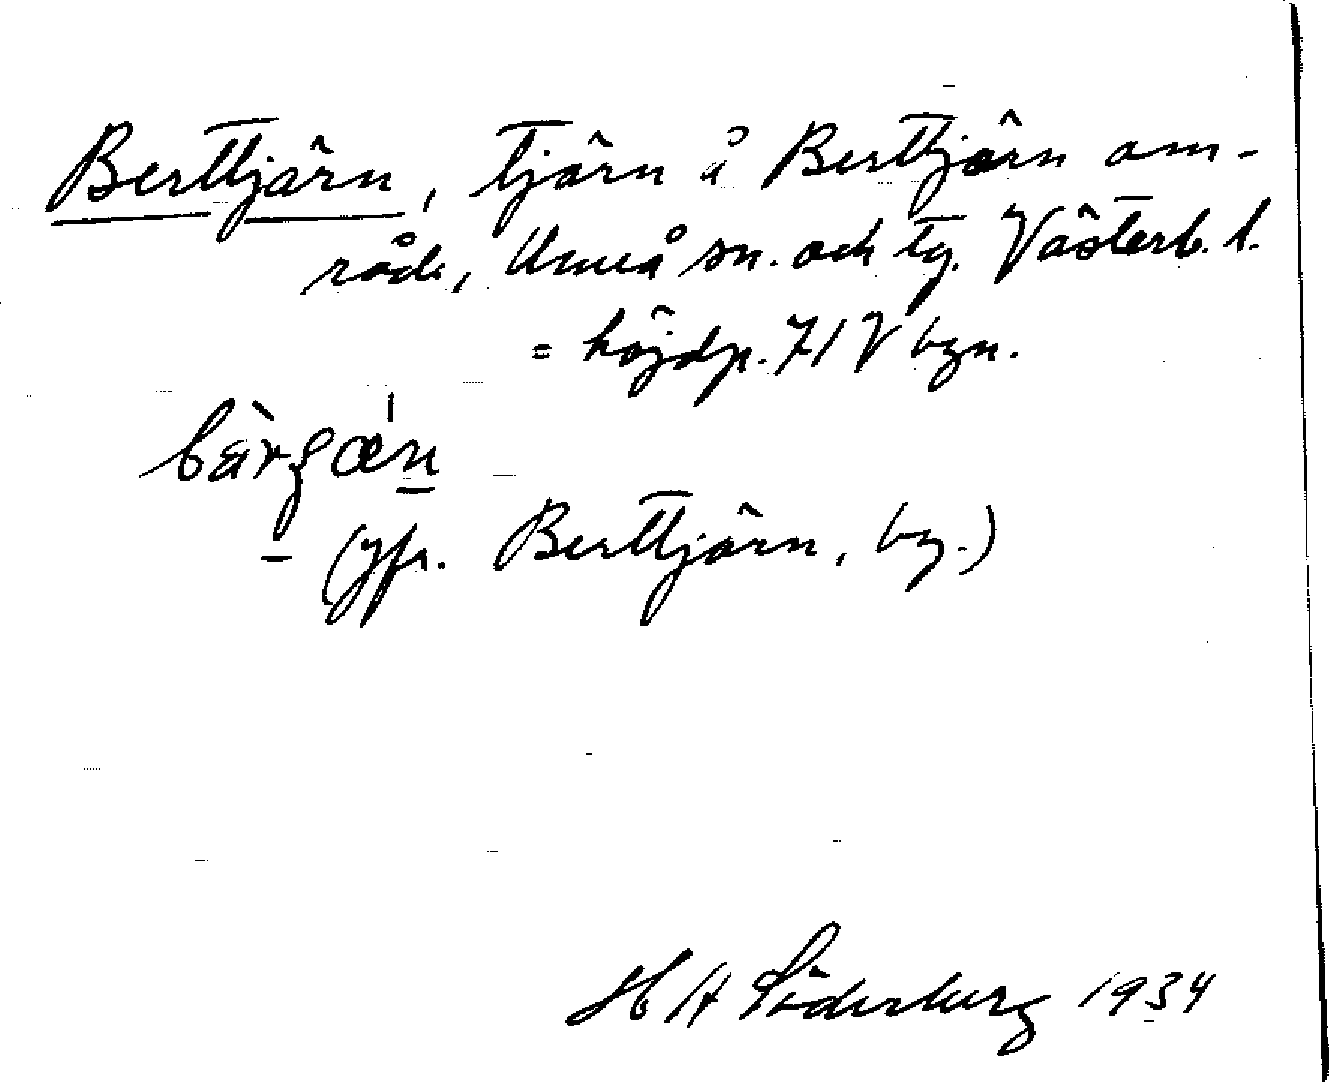 Berttjärn, tjärn å Berttjärn om-
råde, Umeå sn. och tg. Västerb. l.
= höjdp. 71 V byn.
(Jfr. Berttjärn, by.)
H A Söderberg 1934